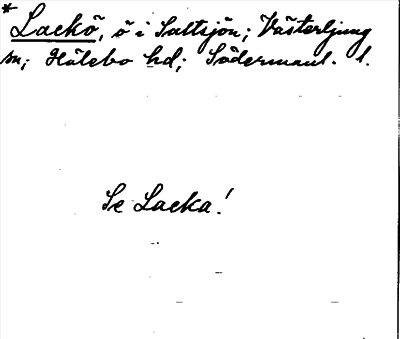 * Lackö, ö i Saltsjön; Västerljung
sn; Hölebo hd; Södermanl. l.
Se Lacka!